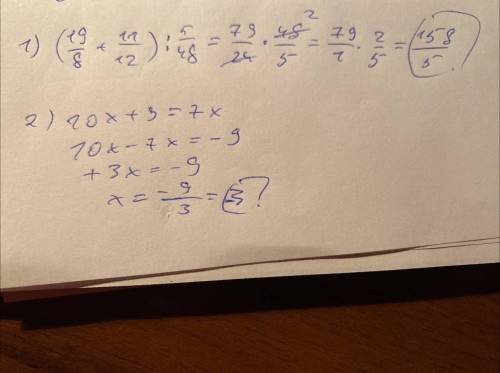 1) (19/8 + 11/12) : 5/48 = 79/24 · 48²/5 = 79/1 · 2/5 = 158/5 ?
2) 10x + 9 = 7x
10x - 7x = -9
+ 3x = -9
x = -9/3 = 3 ?